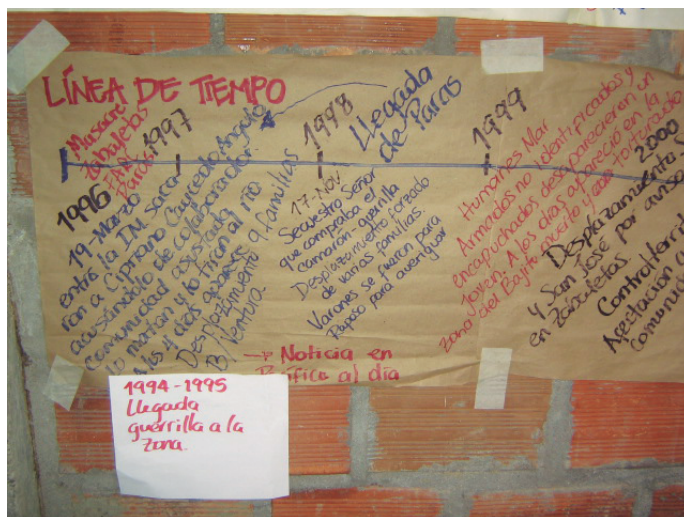 LÍNEA DE TIEMPO
Masacre
Zabaletas
FARC
Paras.
1996
19-Marzo
entró la IM. saca-
ron a Cipriano Caycedo Angulo
acusándolo de colaborador.
Comunidad asustada
lo matan y lo tiran al río.
A los 4 días aparece
Desplazamiento 9 familias
B/Ventura.
1997
1998
Llegada
de Paras
17-Nov
Secuestro Señor
que compraba el
camarón-guerrilla
Desplazamiento forzado
de varias familias.
Varones se fueron para
Raposo para averiguar
→ Noticia en
Pacífico al día
1999
Humanes Mar
Armados no identificados y
encapuchados desaparecieron un
joven. A los días apareció en la
zona del Bajito muerto y todo torturado
2000
Desplazamiento
y San José por
en Zabaletas.
Control territ
Afectación a
comunid
1994-1995
Llegada
guerrilla a la
zona.